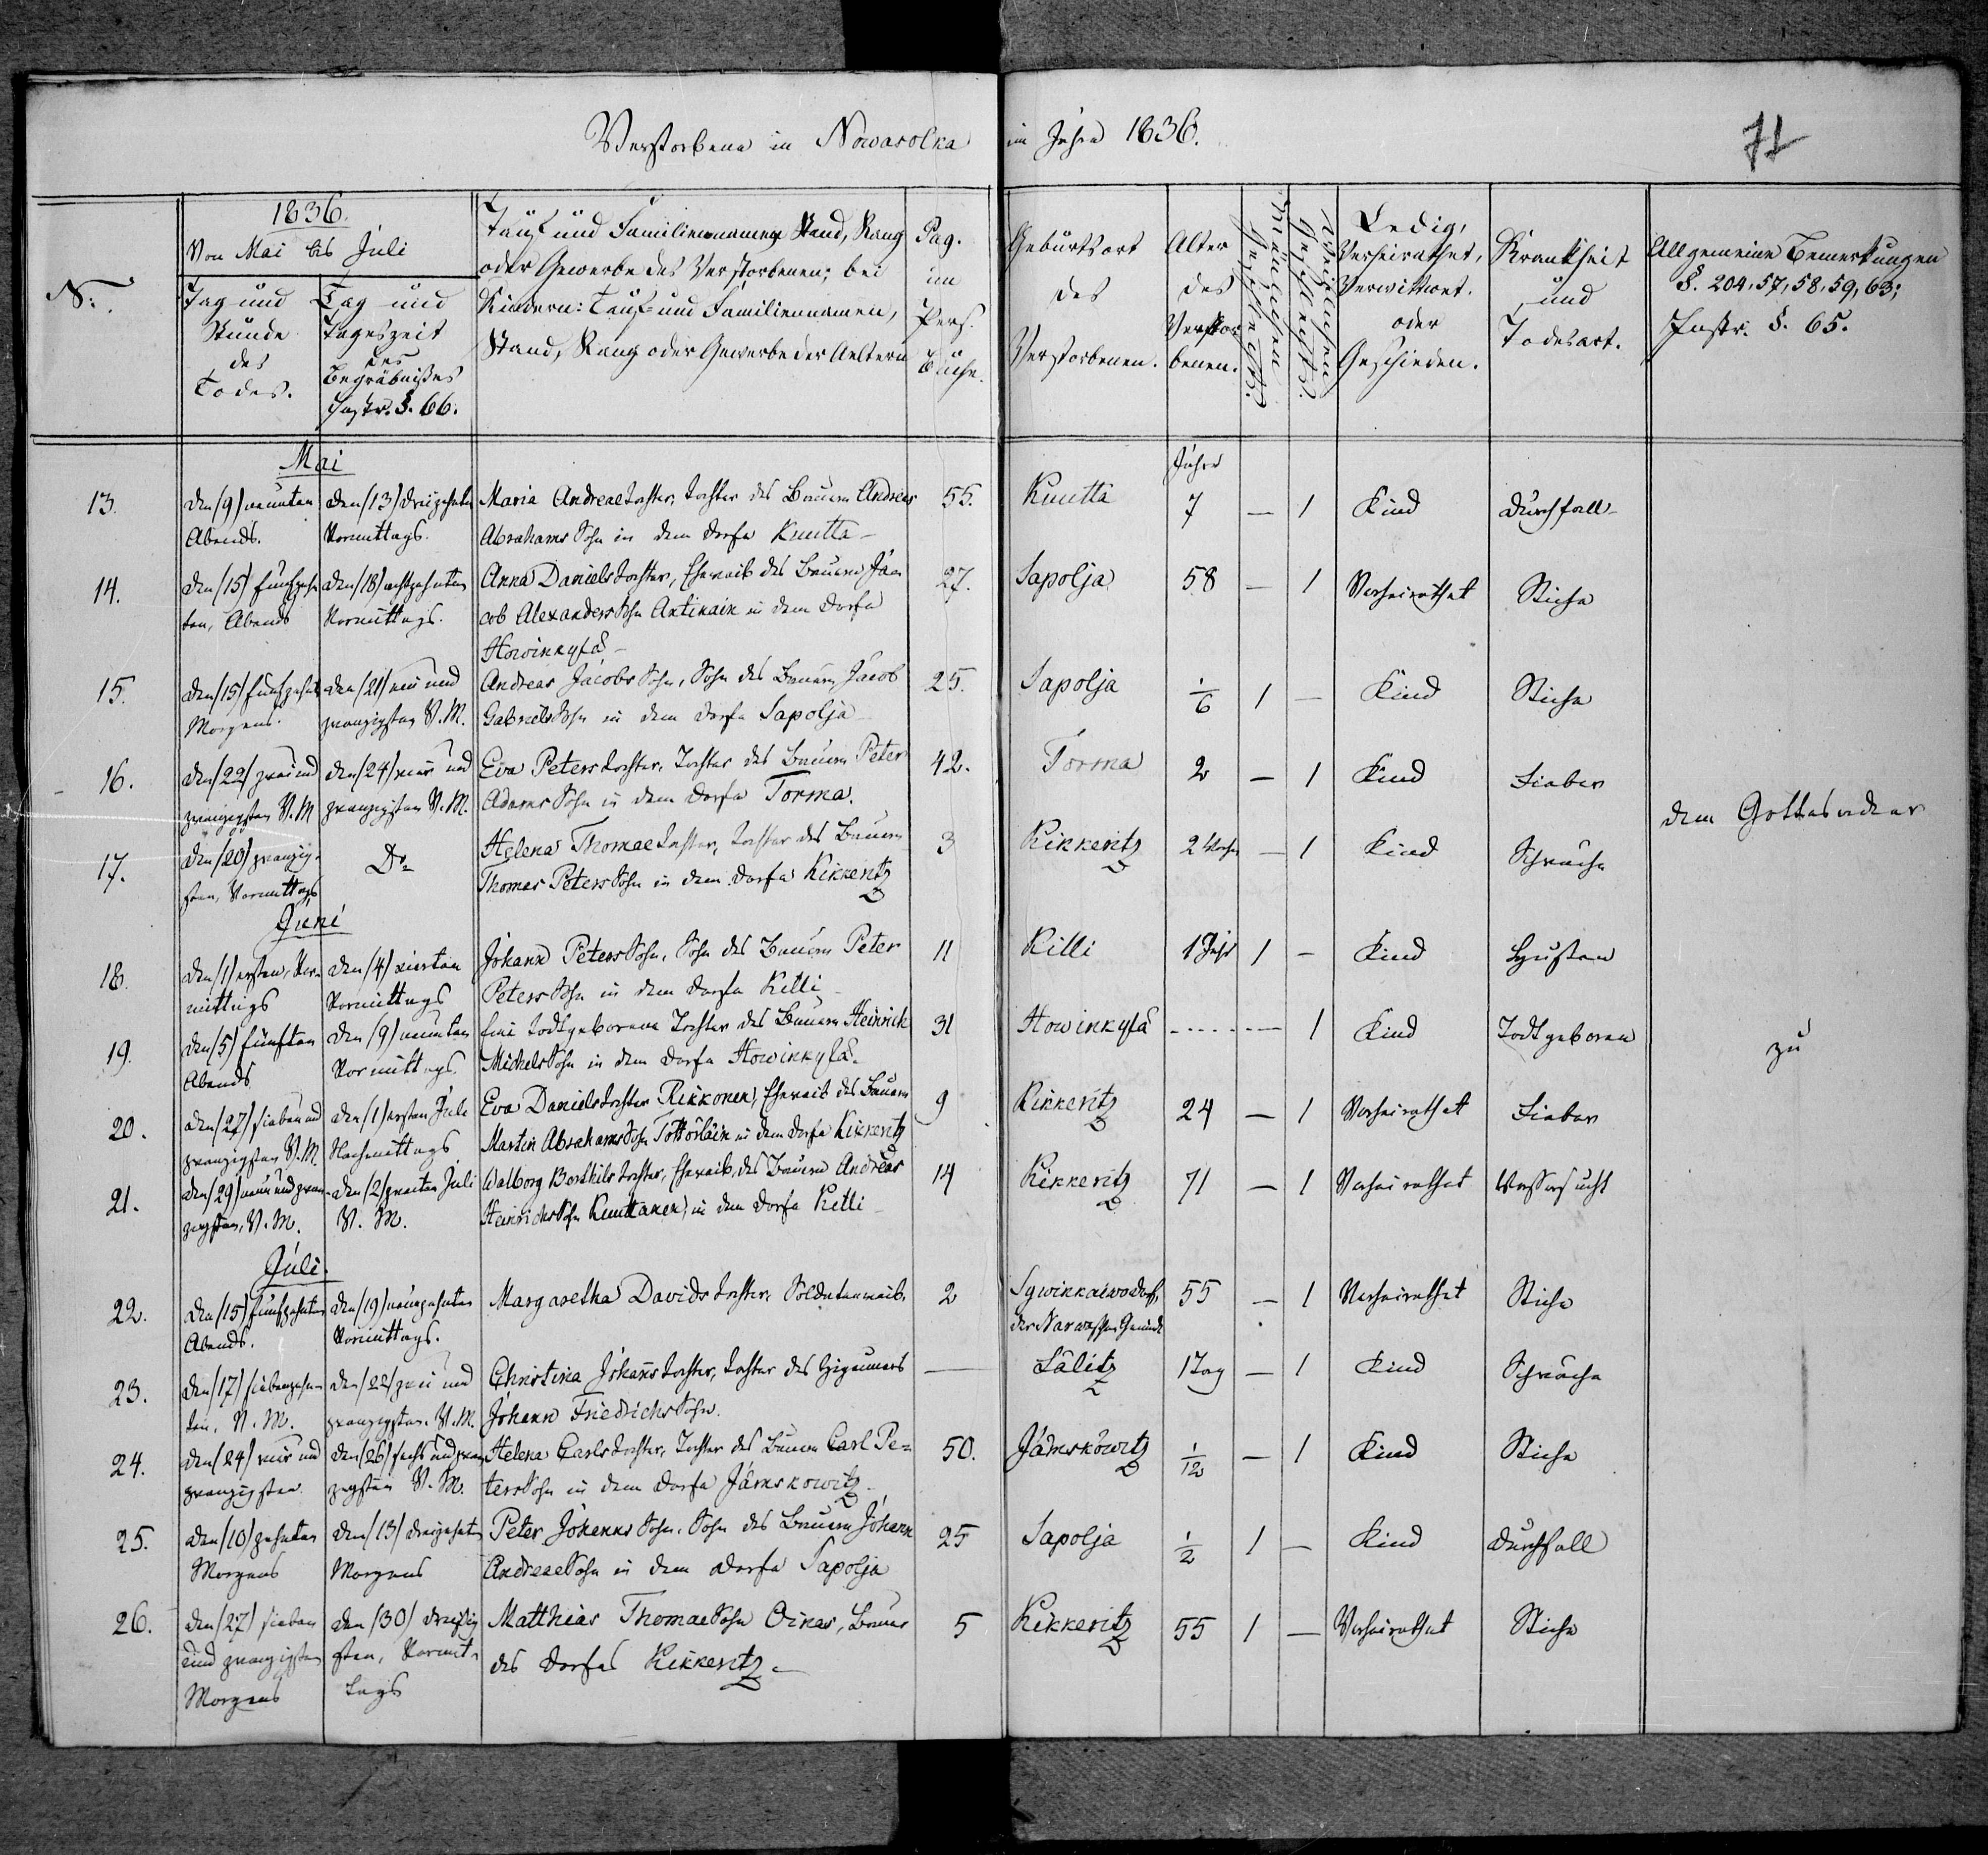 Verstorbene in Nowasolka im Jahre 1836.
71
N:
1836.
Von Mai bis Juli
Tag und Stunde des Todes.
Tag und Tageszeit des Begräbnißes Instr. §. 66.
Tauf und Familiennamen Stand, Rang
oder Gewerbe des Verstorbenen; bei
Kindern: Tauf- und Familiennamen,
Stand, Rang oder Gewerbe der Aeltern
Pag. im Pers. Buche.
Geburtsort des Verstorbenen.
Alter des Verstorbenen.
Männlichen Geschlechts.
Weiblichen Geschlechts.
Ledig, Verheirathet, Verwittwet. oder Geschieden.
Krankheit und Todesart.
Allgemeine Bemerkungen
§. 204, 57, 58, 59, 63;
Instr. §. 65.
Mai
Jahre
13. den (9) neunten den (13) dreizehnten Maria Andreae Tochter, Tochter des Bauern Andreas 55. Kuutta 7 — 1 Kind Durchfall
Abends. Vormittags. Abrahams Sohn in dem Dorfe Kuutta
14. den (15) fünfzehn den (18) achtzehnten Anna Daniels Tochter, Eheweib des Bauern Ja- 27. Sapolja 58 — 1 Verheirathet Stiche
ten, Abends Vormittags. cob Alexanders Sohn Antikain in dem Dorfe
Howinkylä
15. den (15) fünfzehnten den (21) ein und Andreas Jacobs Sohn, Sohn des Bauern Jacob 25. Sapolja 1/6 1 — Kind Stiche
Morgens. zwanzigsten V. M. Gabriels Sohn in dem Dorfe Sapolja
16. den (22) zwei und den (24) vier und Eva Peters Tochter, Tochter des Bauern Peter 42. Torma 2 — 1 Kind Fieber
zwanzigsten V. M. zwanzigsten V. M. Adams Sohn in dem Dorfe Torma.
dem Gottesacker
17. den (20) zwanzig- Do Helena Thomae Tochter, Tochter des Bauern 3 Kikkeritz 2 Woch — 1 Kind Schwäche
sten, Vormittags Thomas Peters Sohn in dem Dorfe Kikkeritz
Juni
18. den (1) ersten, Vor- den (4) vierten Johann Peters Sohn, Sohn des Bauern Peter 11 Killi 1 Jahr 1 — Kind Husten
mittags Vormittags Peters Sohn in dem Dorfe Killi
19. den (5) fünften den (9) neunten Eine todtgeborene Tochter des Bauern Heinrich 31 Howinkylä — 1 Kind Todtgeboren
Abends Vormittags. Michels Sohn in dem Dorfe Howinkylä.
zu
20. den (27) sieben und den (1) ersten Juli Eva Daniels Tochter Rikkonen, Eheweib des Bauern 9 Kikkeritz 24 — 1 Verheirathet Fieber
zwanzigsten V. M. Nachmittags Martin Abrahams Sohn in dem Dorfe Kikkeritz
21. den (29) neun und zwan- den (2) zweiten Juli Walborg Borthils Tochter, Eheweib des Bauern Andreas 14 Kikkeritz 71 — 1 Verheirathet Wassersucht
zigsten, V. M. V. M. Heinrichs Sohn Kuuttanen, in dem Dorfe Killi
Juli.
22. den (15) fünfzehnten den (19) neunzehnten Margaretha Davids Tochter, Soldatenweib. 2 Sywinkaiwo Dorf, 55 — 1 Verheirathet Stiche
Abends. Vormittags. der Narwaschen Gemeinde
23. den (17) siebenzehn- den (22) zwei und Christina Johanns Tochter, Tochter des Zigeuners — Lälitz 1 Tag — 1 Kind Schwäche
ten, V. M. zwanzigsten V. M. Johann Friedrichs Sohn.
24. den (24) vier und den (26) sechs und zwan- Helena Carls Tochter, Tochter des Bauern Carl Pe- 50. Jämskowitz 1/12 — 1 Kind Stiche
zwanzigsten zigsten V. M. ters Sohn in dem Dorfe Jämskowitz
25. den (10) zehnten den (13) dreizehnten Peter Johanns Sohn, Sohn des Bauern Johann 25 Sapolja 1/2 1 — Kind Durchfall
Morgens Morgens Andreae Sohn in dem Dorfe Sapolja
26. den (27) sieben den (30) dreißig Matthias Thomae Sohn Oinas, Bauer 5 Kikkeritz 55 1 — Verheirathet Stiche
und zwanzigsten sten, Vormit- des Dorfes Kikkeritz
Morgens tags